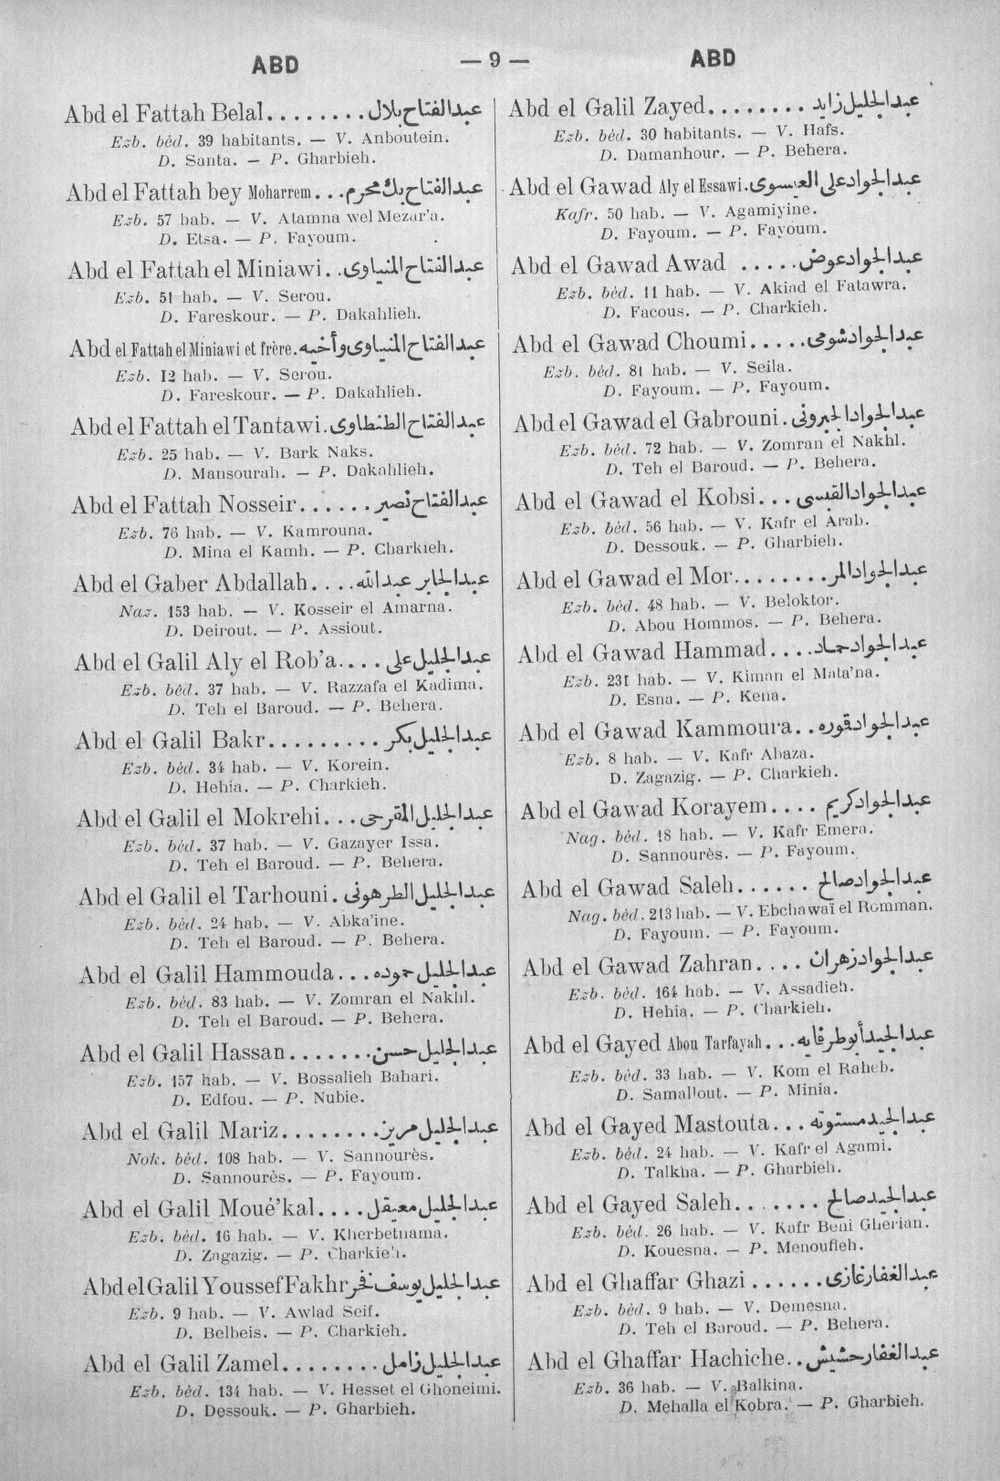 ABD
— 9 —
ABD
Abd el Fattah Belal........ عبد الفتاح بلال
Ezb. béd. 39 habitants. — V. Anboutein.
D. Santa. — P. Gharbieh.
Abd el Fattah bey Moharrem... عبد الفتاح بك محرم
Ezb. 57 hab. — V. Atamna wel Mezar'a.
D. Etsa. — P. Fayoum.
Abd el Fattah el Miniawi.. عبد الفتاح المنياوى
Ezb. 51 hab. — V. Serou.
D. Fareskour. — P. Dakahlieh.
Abd el Fattah el Miniawi et frère. عبد الفتاح المنياوى وأخيه
Ezb. 12 hab. — V. Serou.
D. Fareskour. — P. Dakahlieh.
Abd el Fattah el Tantawi. عبد الفتاح الطنطاوى
Ezb. 25 hab. — V. Bark Naks.
D. Mansourah. — P. Dakahlieh.
Abd el Fattah Nosseir...... عبد الفتاح نصير
Ezb. 76 hab. — V. Kamrouna.
D. Mina el Kamh. — P. Charkieh.
Abd el Gaber Abdallah.... عبد الجابر عبد الله
Naz. 153 hab. — V. Kosseir el Amarna.
D. Deirout. — P. Assiout.
Abd el Galil Aly el Rob'a.... عبد الجليل على
Ezb. béd. 37 hab. — V. Razzafa el Kadima.
D. Teh el Baroud. — P. Behera.
Abd el Galil Bakr......... عبد الجليل بكر
Ezb. béd. 34 hab. — V. Korein.
D. Hehia. — P. Charkieh.
Abd el Galil el Mokrehi... عبد الجليل المقرحى
Ezb. béd. 37 hab. — V. Gazayer Issa.
D. Teh el Baroud. — P. Behera.
Abd el Galil el Tarhouni. عبد الجليل الطرهونى
Ezb. béd. 24 hab. — V. Abka'ine.
D. Teh el Baroud. — P. Behera.
Abd el Galil Hammouda... عبد الجليل حموده
Ezb. béd. 83 hab. — V. Zomran el Nakhl.
D. Teh el Baroud. — P. Behera.
Abd el Galil Hassan....... عبد الجليل حسن
Ezb. 157 hab. — V. Bossalieh Bahari.
D. Edfou. — P. Nubie.
Abd el Galil Mariz........ عبد الجليل مريز
Nok. béd. 108 hab. — V. Sannourès.
D. Sannourès. — P. Fayoum.
Abd el Galil Moué'kal.... عبد الجليل معيقل
Ezb. béd. 16 hab. — V. Kherbetnama.
D. Zagazig. — P. Charkieh.
Abd el Galil Youssef Fakhr عبد الجليل يوسف فخر
Ezb. 9 hab. — V. Awlad Seif.
D. Belbeis. — P. Charkieh.
Abd el Galil Zamel........ عبد الجليل زامل
Ezb. béd. 134 hab. — V. Hesset el Ghoneimi.
D. Dessouk. — P. Gharbieh.
Abd el Galil Zayed........ عبد الجليل زايد
Ezb. béd. 30 habitants. — V. Hafs.
D. Damanhour. — P. Behera.
Abd el Gawad Aly el Essawi. عبد الجواد على العيسوى
Kafr. 50 hab. — V. Agamiyine.
D. Fayoum. — P. Fayoum.
Abd el Gawad Awad ..... عبد الجواد عوض
Ezb. béd. 11 hab. — V. Akiad el Fatawra.
D. Facous. — P. Charkieh.
Abd el Gawad Choumi..... عبد الجواد شومى
Ezb. béd. 81 hab. — V. Seila.
D. Fayoum. — P. Fayoum.
Abd el Gawad el Gabrouni. عبد الجواد الجبرونى
Ezb. béd. 72 hab. — V. Zomran el Nakhl.
D. Teh el Baroud. — P. Behera.
Abd el Gawad el Kobsi... عبد الجواد القبسى
Ezb. béd. 56 hab. — V. Kafr el Arab.
D. Dessouk. — P. Gharbieh.
Abd el Gawad el Mor........ عبد الجواد المر
Ezb. béd. 48 hab. — V. Beloktor.
D. Abou Hommos. — P. Behera.
Abd el Gawad Hammad.... عبد الجواد حماد
Ezb. 231 hab. — V. Kiman el Mata'na.
D. Esna. — P. Kena.
Abd el Gawad Kammoura.. عبد الجواد قوره
Ezb. 8 hab. — V. Kafr Abaza.
D. Zagazig. — P. Charkieh.
Abd el Gawad Korayem.... عبد الجواد كريم
Nag. béd. 18 hab. — V. Kafr Emera.
D. Sannourès. — P. Fayoum.
Abd el Gawad Saleh...... عبد الجواد صالح
Nag. béd. 213 hab. — V. Ebchawaï el Romman.
D. Fayoum. — P. Fayoum.
Abd el Gawad Zahran.... عبد الجواد زهران
Ezb. béd. 164 hab. — V. Assadieh.
D. Hehia. — P. Charkieh.
Abd el Gayed Abou Tarfayah... عبد الجيد أبو طرفايه
Ezb. béd. 33 hab. — V. Kom el Raheb.
D. Samallout. — P. Minia.
Abd el Gayed Mastouta... عبد الجيد مستوته
Ezb. béd. 24 hab. — V. Kafr el Agami.
D. Talkha. — P. Gharbieh.
Abd el Gayed Saleh....... عبد الجيد صالح
Ezb. béd. 26 hab. — V. Kafr Beni Gherian.
D. Kouesna. — P. Menoufieh.
Abd el Ghaffar Ghazi ...... عبد الغفار غازى
Ezb. béd. 9 hab. — V. Demesna.
D. Teh el Baroud. — P. Behera.
Abd el Ghaffar Hachiche.. عبد الغفار حشيش
Ezb. 36 hab. — V. Balkina.
D. Mehalla el Kobra. — P. Gharbieh.